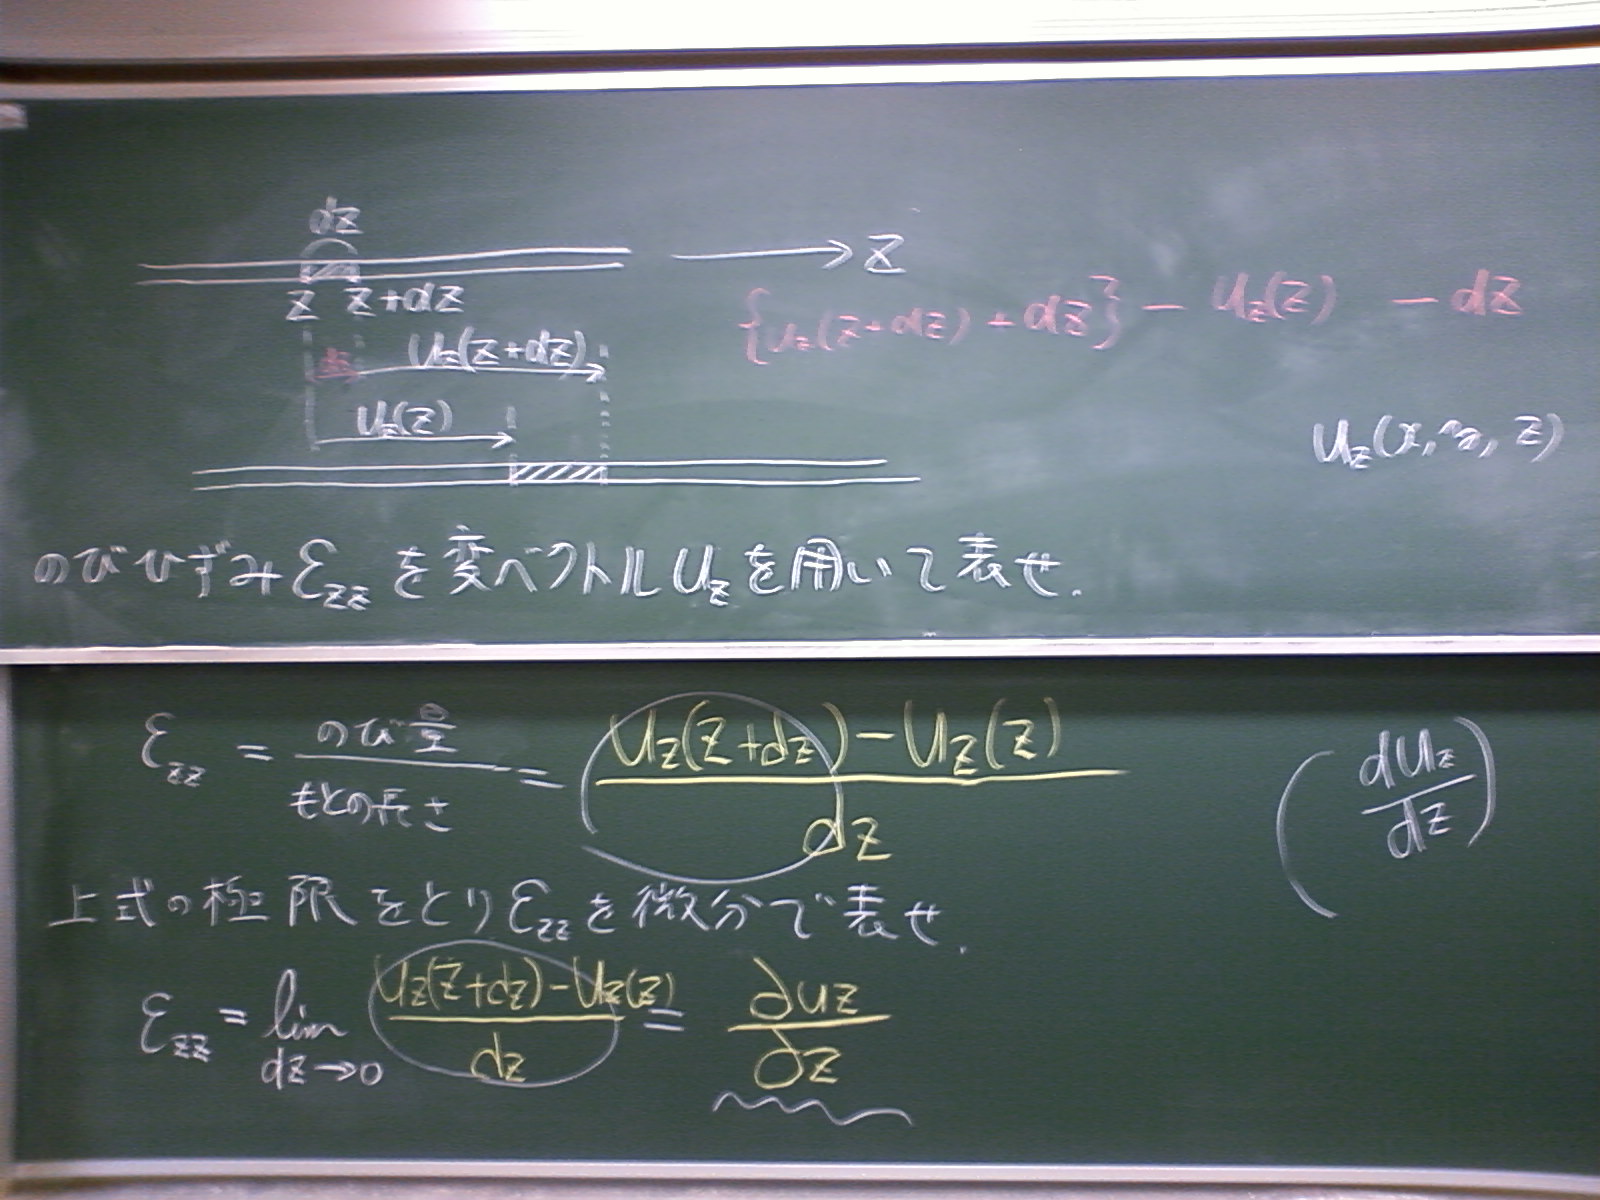 dz
z z+dz
→ z
{u_z(z+dz) + dz} - u_z(z) - dz
dz u_z(z+dz)
u_z(z)
u_z(x, y, z)
のびひずみ ε_zz を変ベクトル u_z を用いて表せ.
ε_zz = のび量/もとの長さ = (u_z(z+dz) - u_z(z))/dz
(du_z/dz)
上式の極限をとり ε_zz を微分で表せ.
ε_zz = lim dz→0 (u_z(z+dz) - u_z(z))/dz = ∂u_z/∂z